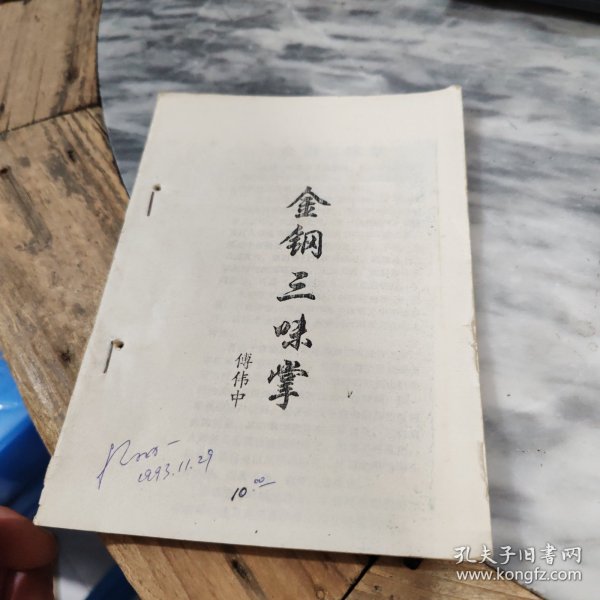 金鋼三昧掌
傅伟中
1993.11.29
10.00
孔夫子旧书网
www.kongfz.com